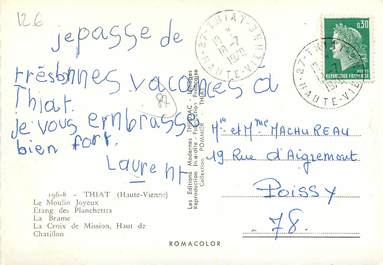 126
je passe de
très bonnes vacances à
Thiat.
82
je vous embrasse
bien fort.
Laurent
196-8 - THIAT (Haute-Vienne)
Le Moulin Joyeux
Etang des Planchettes
La Brame
La Croix de Mission, Haut de
Chatillon
Les Editions Modernes
Reproduction
Collection POMMIER
87-THIAT
18-7
1970
HAUTE-VIENNE
0,30
REPUBLIQUE FRANÇAISE
87-THIAT
HAUTE-VIENNE
Mr et Mme MACHUREAU
19 Rue d'Aigremont
POISSY
78.
ROMACOLOR